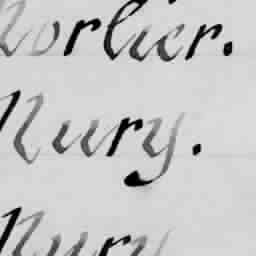 Norlier.
Nury.
Nury